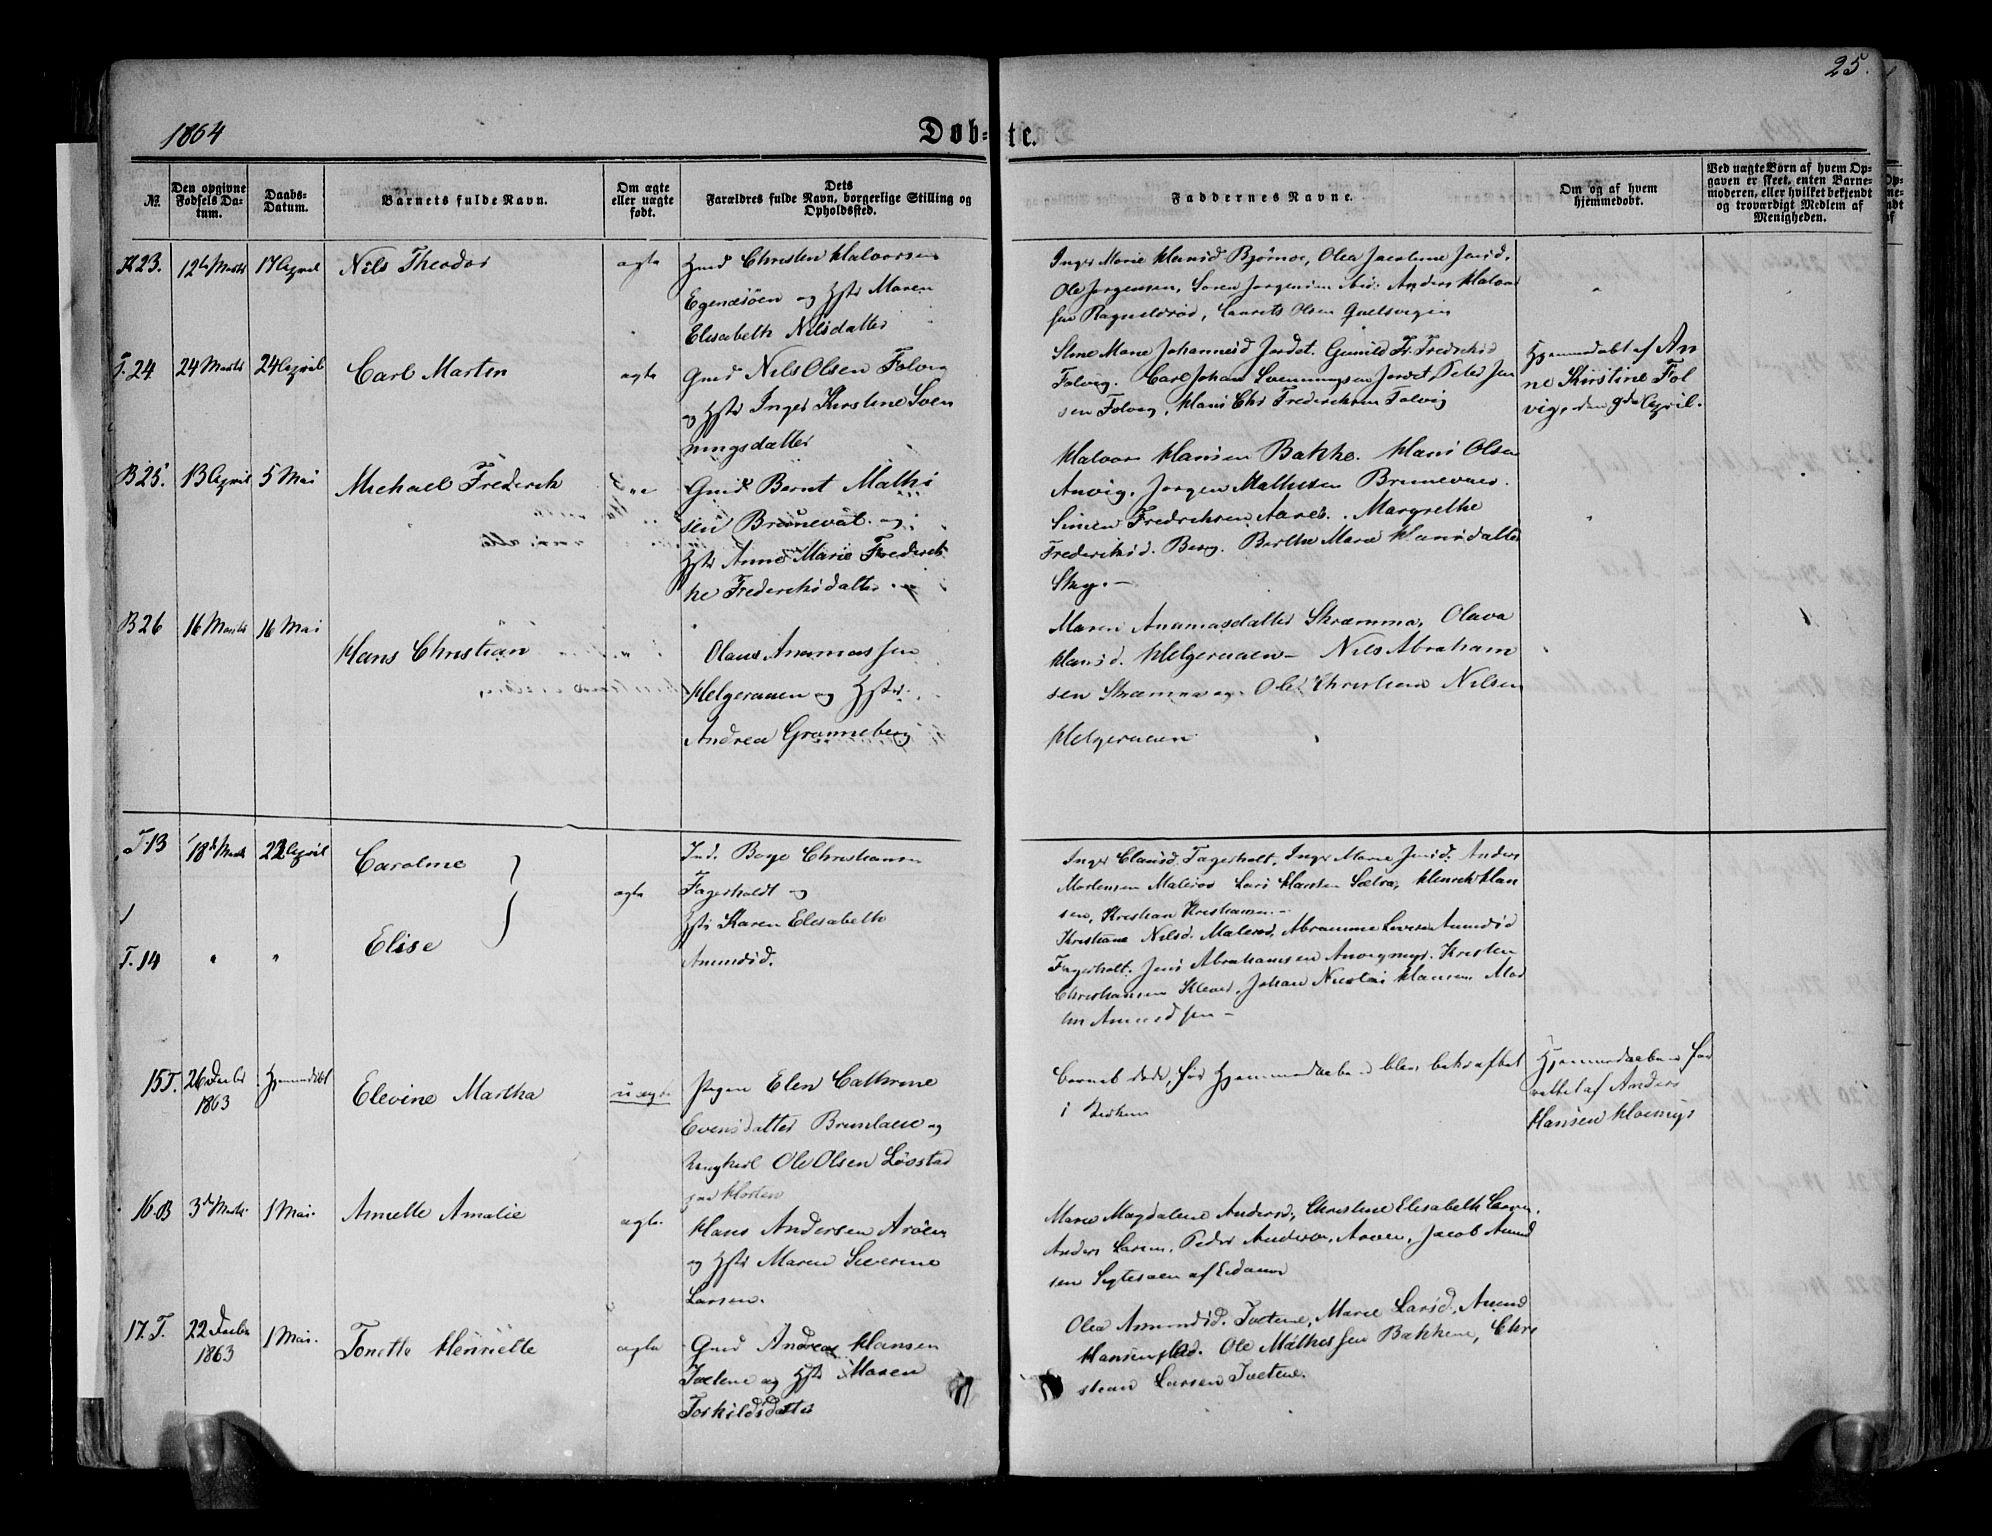 25.
1864
Døb-te.
№.
Den opgivne Fødsels Datum.
Daabs-Datum.
Barnets fulde Navn.
Om ægte eller uægte født.
Dets Forældres fulde Navn, borgerlige Stilling og Opholdssted.
Faddernes Navne.
Om og af hvem hjemmedøbt.
Ved uægte Børn af hvem Opgaven er skeet, enten Barnemoderen, eller hvilket bekjendt og troværdigt Medlem af Menigheden.
23.
12te Marts
17 April
Nils Theodor
ægte
Christen Halvorsen
og Hstr Maren
Elisabeth Nilsdatter
Inger Marie Hansd Bjørnøe, Olea Jacobine Jensd.
Ole Jørgensen, Søren Jørgensen Anders Halvor
sen Ragnildrød, Laurits Olsen
T. 24
24 Marts
24 April
Carl Martin
ægte
Gmd Nils Olsen Folvig
og Hstr Inger Kirstine Sven
ningsdatter
Johannesd Jordet. Gunild Fr. Fredriksd
Folvig. Carl Johan Svenningsen Jordet, Peder Jen
sen Folvig, Hans Chr Frederiksen Folvig
Hjemmedøbt af An
ne Kirstine Fol
vig, den 9de April.
B 25.
13 April
5 Mai
Michael Frederik
Gmd Bernt Mathi
sen Bruneval. og
Hstr Anne Marie Frederik
ke Frederiksdatter
Halvor Hansen Bakke. Hans Olsen
Anvig. Jørgen Mathisen Brunevald.
Simen Fredriksen Aares. Margrethe
Frederiksd. Berg. Berthe Marie Hansdatter
Sky. —
B 26
16 Marts
16 Mai
Hans Christian
Olaus Ananiassen
Helgeraaen og Hstr.
Andrea Granneberg
Maren Ananiasdatter Skræmma, Olava
Hansd. Helgeraaen — Nils Abraham
sen Skræmma og Ole Christian Nilsen
Helgeraaen
T. 13
18d Marts
22 April
Caroline
ægte
Ind. Boye Christiansen
Fagerholdt og
Hstr Karen Elisabeth
Amundsd.
Inger Clausd. Fagerholt, Inger Marie Jensd. Anders
Mortensen Malerød Lars Hansen Sætra, Henrik Han
sen, Kristian Kristiansen. —
T. 14
"
"
Elise
Kristiane Nilsd. Malerød, Amundsd
Fagerholt. Jens Abrahamsen Anvigmyr. Kristen
Christiansen Klever. Johan Nicolai Hansen Mar
tin Amundsen —
15 T.
26 Decbr
1863
Hjemmedøbt
Elevine Martha
uægte
Pigen Elen Cathrine
Evensdatter Brunlane og
Ungkarl Ole Olsen Løvstad
paa Hosten
Barnet døde, før Hjemmedaaben blev bekræftet
i Kirken
Hjemmedaaben for
rettet af Anders
Hansen
16. B
3de Marts.
1 Mai.
Annette Amalie
ægte.
Hans Andersen Arøen
og Hstr Maren Severine
Larsen.
Marie Magdalene Andersd, Christine Elisabeth Larsen,
Anders Larsen, Peder Andersen, Arøen, Jacob Amund
sen af Eidanger
17. T.
22 Decbr
1863
1 Mai.
Tonette Henriette
ægte
Gmd Andreas Hansen
Tvetene og Hstr Maren
Torkildsdatter
Olea Amundsd. Tvetene, Marie Larsd, Amund
Hansen Ole Mathissen Bakkene, Chri
stian Larsen Tvetene.